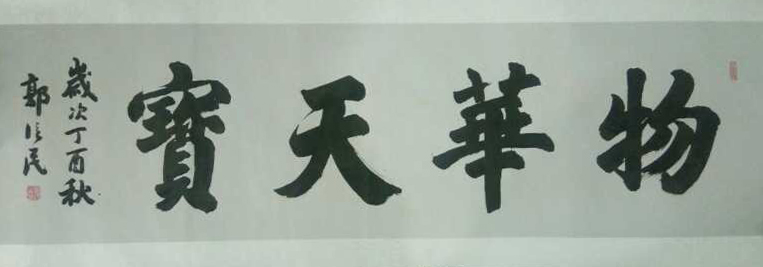 物華天寶
歲次丁酉秋
郭信民